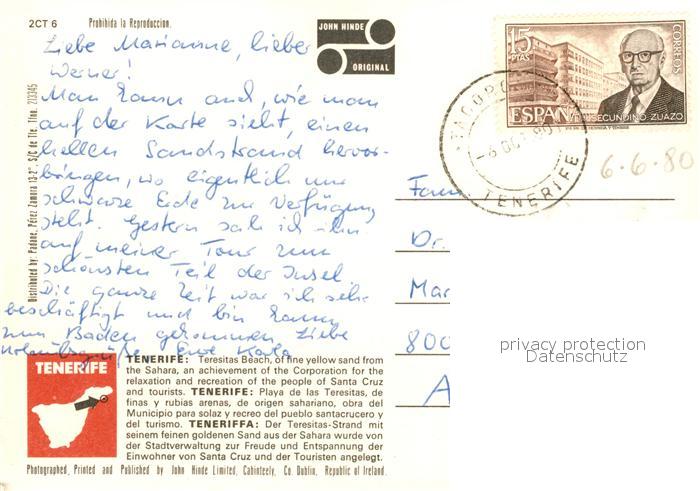 2CT 6 Prohibida la Reproduccion.
JOHN HINDE
ORIGINAL
Liebe Marianne, lieber
Werner!
Man kann auch, wie man
auf der Karte sieht, einen
hellen Sandstrand hervor-
bringen, wo eigentlich nur
schwarze Erde zur Verfügung
steht. Gestern sah ich ihn
auf meiner Tour zum
schönsten Teil der Insel.
Die ganze Zeit war ich sehr
beschäftigt und bin kaum
zum Baden gekommen. Liebe
Urlaubsgrüße Eure Karla
Distributed by: Padone, Pérez Zamora 13-2º. S/C de Tfe. Tfno. 213345
15
PTAS
CORREOS
ESPAÑA
SECUNDINO ZUAZO
TENERIFE
6.6.80
Fam
Dr.
Mar
800
A
privacy protection
Datenschutz
TENERIFE
TENERIFE: Teresitas Beach, of fine yellow sand from
the Sahara, an achievement of the Corporation for the
relaxation and recreation of the people of Santa Cruz
and tourists. TENERIFE: Playa de las Teresitas, de
finas y rubias arenas, de origen sahariano, obra del
Municipio para solaz y recreo del pueblo santacrucero y
del turismo. TENERIFFA: Der Teresitas-Strand mit
seinem feinen goldenen Sand aus der Sahara wurde von
der Stadtverwaltung zur Freude und Entspannung der
Einwohner von Santa Cruz und der Touristen angelegt.
Photographed, Printed and Published by John Hinde Limited, Cabinteely, Co. Dublin, Republic of Ireland.